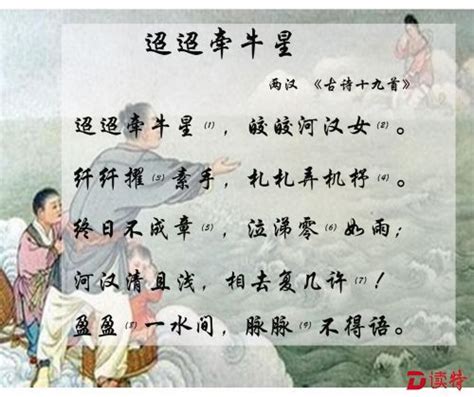 迢迢牵牛星
两汉 《古诗十九首》
迢迢牵牛星(1)，皎皎河汉女(2)。
纤纤擢(3)素手，札札弄机杼(4)。
终日不成章(5)，泣涕零(6)如雨；
河汉清且浅，相去复几许(7)！
盈盈(8)一水间，脉脉(9)不得语。
读特